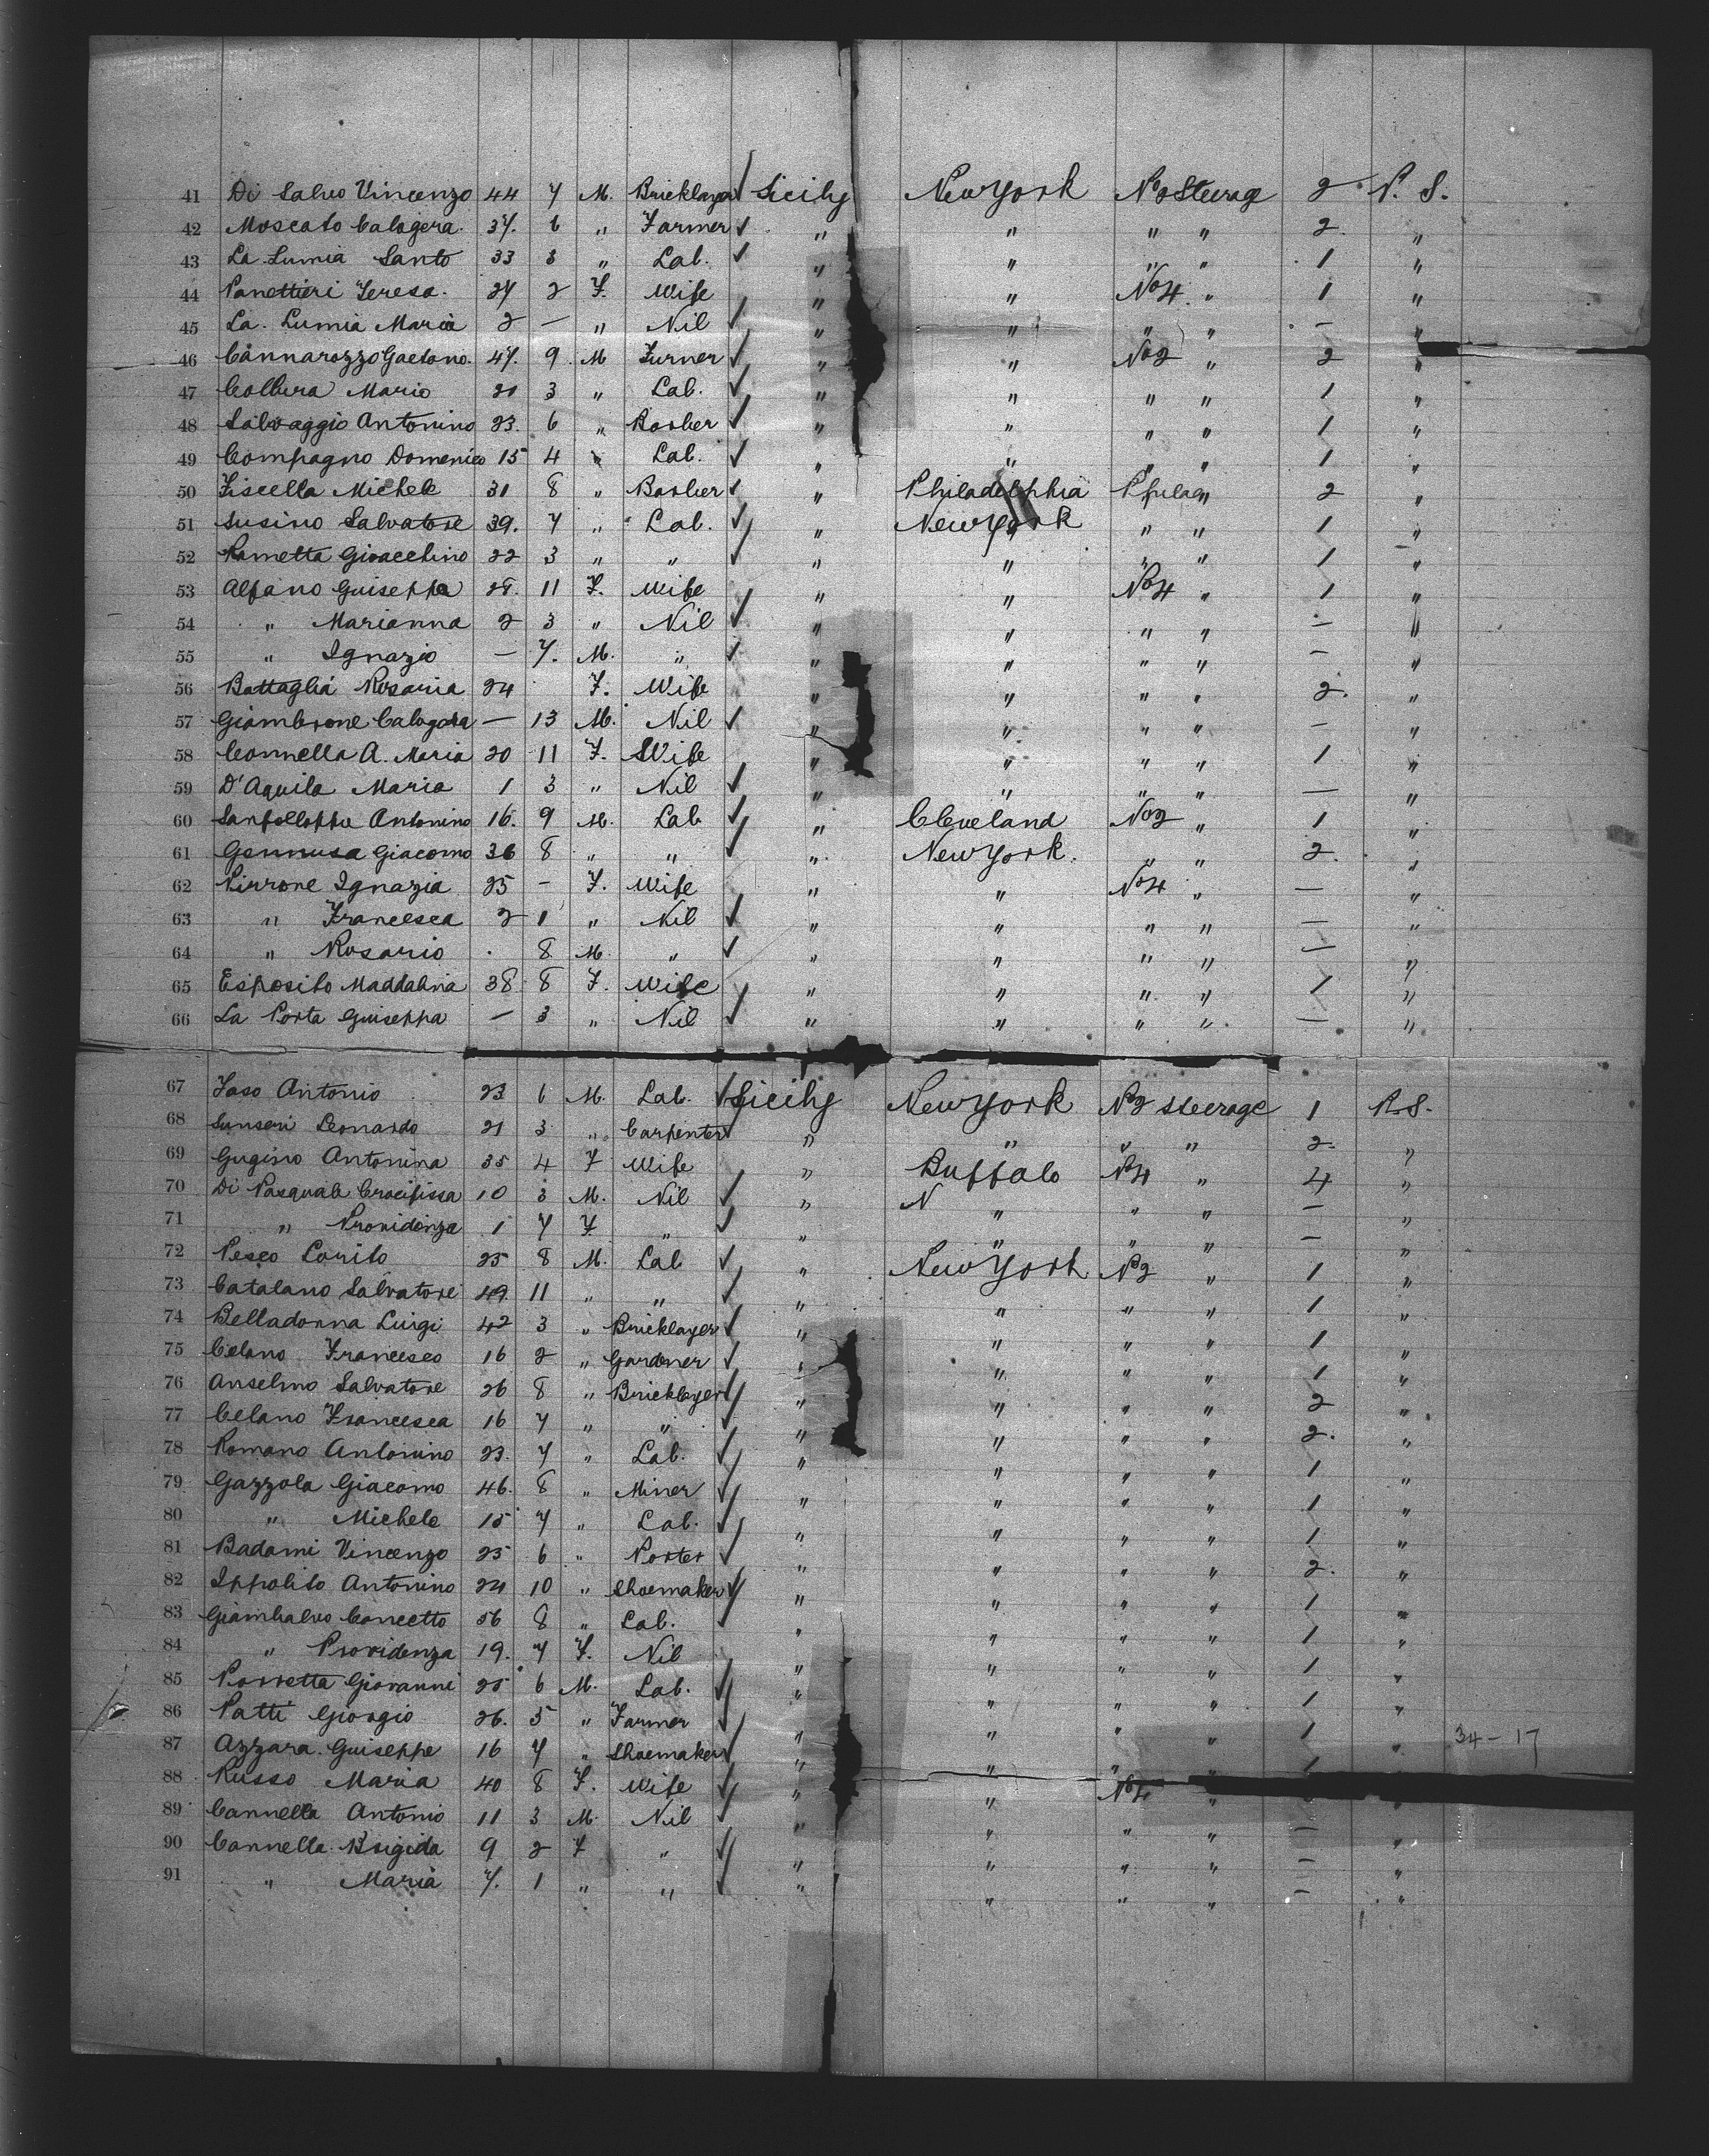 41 Di Salvo Vincenzo 44 7 M. Bricklayer Sicily New York No 2 Steerage 2 P. S.
42 Moscato Calogera. 37. 6 " Farmer " " " " 2. "
43 La Lumia Santo 33 3 " Lab. " " " " 1 "
44 Panettieri Teresa. 27 2 F. Wife " " No 4. " 1 "
45 La. Lumia Maria 2 — " Nil " " " " — "
46 Cannarozzo Gaetano. 47. 9. M Turner " " No 2 " 2 "
47 Collura Mario 21 3 " Lab. " " " " 1 "
48 Salvaggio Antonino 23. 6 " Barber " " " " 1 "
49 Compagno Domenico 15 4 " Lab. " " " " 1 "
50 Fiscella Michele 31 8 " Barber " Philadelphia " 2 "
51 Susino Salvatore 39. 7 " Lab. " New York " " 1 "
52 Rametta Gioacchino 22 3 " " " " " " 1 "
53 Alfano Guiseppa 28. 11 F. Wife " " No 4 " 1 "
54 " Marianna 2 3 " Nil " " " " — "
55 " Ignazio — 7. M. " " " " " — "
56 Battaglia Rosaria 24 F. Wife " " " " 2. "
57 Giambrone Calogera — 13 M. Nil " " " " — "
58 Connella A. Maria 20 11 F. Wife " " " " 1 "
59 D'Aquila Maria 1 3 " Nil " " " " — "
60 Antonino 16. 9 M. Lab " Cleveland No 2 " 1 "
61 Gennusa Giacomo 36 8 " " " New York. " " 2. "
62 Pirrone Ignazia 25 — F. Wife " " No 4 " — "
63 " Francesca 2 1 " Nil " " " " — "
64 " Rosario . 8 M. " " " " " — "
65 Esposito Maddalina 38. 8 F. Wife " " " " 1 "
66 La Porta Guiseppa — 3 " Nil " " " " — "
67 Iaso Antonio 23 6 M. Lab. Sicily New York No 2 Steerage 1 P. S.
68 Sunseri Leonardo 21 3 " Carpenter " " " " 2. "
69 Gugino Antonina 35 4 F Wife " Buffalo No 4 " 4 "
70 Di Pasquale Crocifissa 10 3 M. Nil " N " " " — "
71 " Providenza 1 7 F. " " " " " — "
72 Pesco Lorito 25 8 M. Lab " New York No 2 " 1 "
73 Catalano Salvatore 49. 11 " " " " " " 1 "
74 Belladonna Luigi 42 3 " Bricklayer " " " " 1 "
75 Celano Francesco 16 2 " Gardener " " " " 1 "
76 Anselmo Salvatore 26 8 " Bricklayer " " " " 2 "
77 Celano Francesca 16 7 " " " " " " 2. "
78 Romano Antonino 23. 7 " Lab. " " " " 1 "
79 Gazzola Giacomo 46. 8 " Miner " " " " 1 "
80 " Michele 15 7 " Lab. " " " " 1 "
81 Badami Vincenzo 25 6 " Porter " " " " 2. "
82 Ippolito Antonino 24 10 " Shoemaker " " " " 1 "
83 Giambalvo Concetto 56 8 " Lab. " " " " 1 "
84 " Providenza 19. 7 F. Nil " " " " 1 "
85 Porretta Giovanni 25 6 M. Lab. " " " " 1 "
86 Patti Giorgio 26. 5 " Farmer " " " " 1 " 34-17
87 Azzara. Guiseppe 16 7 " Shoemaker " " " " 1 "
88 Russo Maria 40 8 F. Wife " " No 4 " "
89 Cannella Antonio 11 3 M. Nil " " " " — "
90 Cannella Brigida 9 2 F " " " " " — "
91 " Maria 7. 1 " " " " " " — "